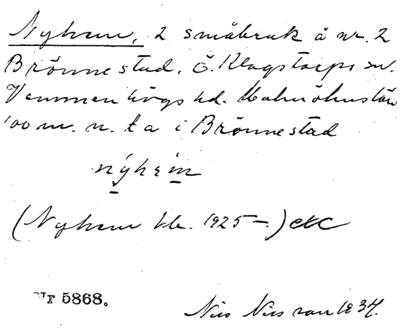 Nyhem, 2 småbruk å nr. 2
Brönnestad, Ö. Klagstorps sn.
Vemmenhögs hd. Malmöhus län
100 m. n. t a i Brönnestad
nýhèm
(Nyhem kb. 1925–) etc
Nr 5868.
Nils Nilsson 1934.